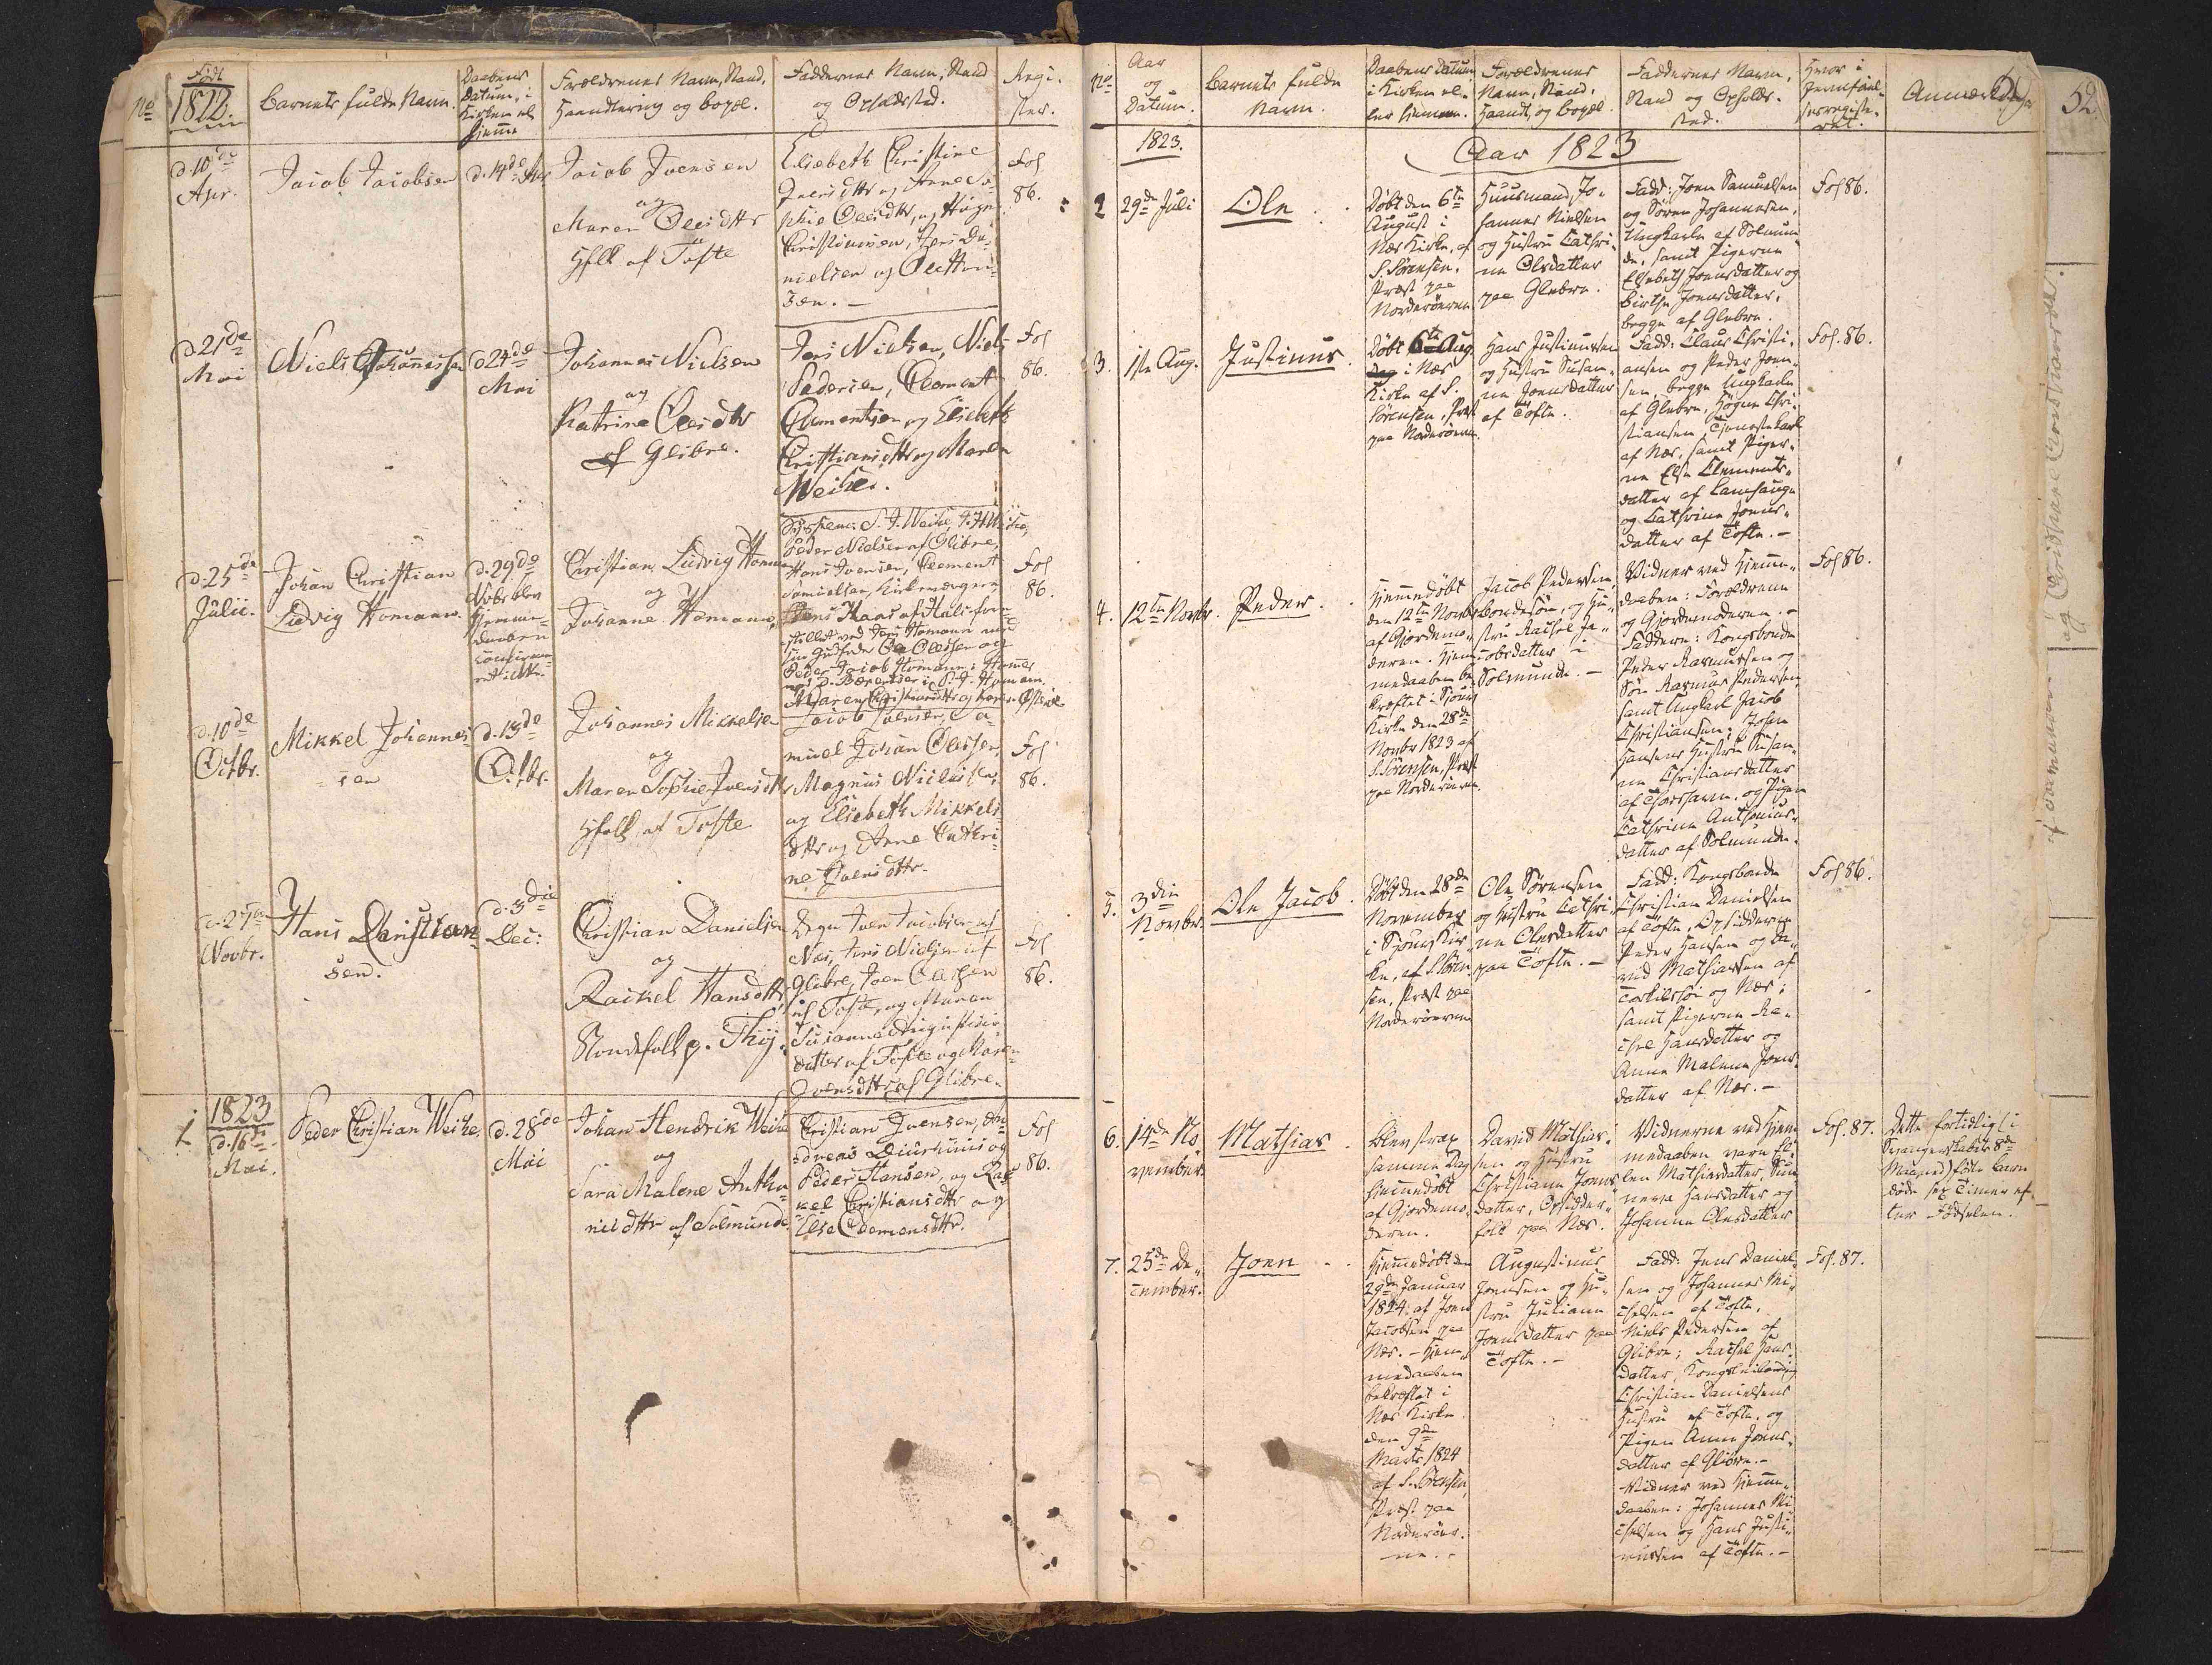 No
Født
1822.
Barnets fulde Navn.
Daabens
Datum, i
Kirken el.
hjemme
Forældrenes Navn, Stand,
Haandtering og bopæl.
Faddernes Navn, Stand
og Opholdssted.
Regi-
ster.
d. 10de
Apr.
Jacob Jacobsen
d. 14de Apr
Jacob Joensen
og
Maren Olesdttr
af Tofte
Elsebeth Christine
Joensdttr og Anne So-
phie Olesdttr, og Høgne
Christiansen, Jens Da-
nielsen og
Fol
86.
d. 21de
Mai
Niels Johannessen
d. 24de
Mai
Johannes Nielsen
og
Katrine Olesdttr
af Glibre.
Jens Nielsen, Niels
Pedersen, Clement
Clementsen og Elsebeth
Christiansdttr og Maren
Weihe.
Fol
86.
d. 25de
Julii.
Johan Christian
Ludvig Homann.
d. 29de
Novbr blev
Hjemme-
daaben
Christian Ludvig Homann
og
Johanne Homann,
Peder Nielsen af Glibre,
Hans Joensen, Clement
Samuelsen,
Fol
86.
d. 10de
Octbr.
Mikkel Johannes-
sen
d. 13de
Octbr.
Johannes Mikkelsen
og
Maren Sophie Joensdttr
af Tofte
Jacob Joensen, Sa-
muel Johan Olessen,
Magnus Niclassen,
og Elsebeth Mikkels-
dttr og Anne Cathri-
ne Joensdttr.
Fol
86.
d. 27de
Novbr.
Hans Christian-
sen.
d. 3die
Dec:
Christian Danielsen
og
Rackel Hansdttr
Joen Jacobsen af
Næs, Jens Nielsen af
Glibre, Joen Olessen
af Tofte, og Maren
Susanne Augustinus-
datter af Tofte og Maren
Joensdttr af Glibre.
Fol
86.
1
1823
d. 16de
Mai.
Peder Christian Weihe,
d. 28de
Mai
Johan Hendrik Weihe
og
Sara Malene Antho-
niidttr af Solmunde.
Christian Joensen, An-
dreas Djurhuus og
Peder Hansen, og Ra-
kel Christiansdttr og
Else Clemensdttr.
Fol
86.
No
Aar
og
Datum.
Barnets fulde
Navn.
Daabens Datum
i Kirken el-
ler hjemme.
Forældrenes
Navn, Stand,
Haandt. og bopæl.
Faddernes Navn,
Stand og Opholds-
sted.
Hvor i
Jevnførel-
sesregiste-
ret.
52
1823.
Aar 1823
2
29de Juli
Ole
Døbt den 6te
August i
Næs Kirke, af
S. Sørensen,
Præst paa
Norderøerne
Huusmand Jo-
hannes Nielsen
og Hustru Cathri-
ne Olesdatter
paa Glibre.
Fadd: Joen Samuelsen
og Søren Johannesen,
Ungkarle af Solmun-
de, samt Pigerne
Elsebeth Joensdatter og
Birthe Joensdatter,
begge af Glibre.
Fol 86.
3.
1ste Aug.
Justinus
Døbt 6te Aug
i Næs
Kirke af S.
Sørensen, Præst
paa Norderøerne.
Hans Justinussen
og Hustru Susan-
ne Joensdatter
af Tofte.
Fadd: Claus Christi-
ansen og Peder Joen-
sen, begge Ungkarle
af Glibre, Högne Chri-
stiansen, Tjenestekarl
af Næs, samt Piger-
ne Else Clements-
datter af Lamhauge
og Cathrine Joens-
datter af Tofte.
Fol. 86.
4.
12te Novbr.
Peder
Hjemmedøbt
den 12te Novbr
af Gjordemo-
deren. Hjem-
medaaben be-
kræftet i Sjoung
Kirke den 28de
Novbr 1823 af
S. Sørensen, Præst
paa Norderøerne.
Jacob Pedersen,
Bondesøn, og Hu-
stru Rachel Ja-
cobsdatter i
Solmunde.
Vidner ved Hjemme-
daaben: Forældrene
og Gjordemoderen.
Faddere: Kongsbonde
Peder Rasmussen og
Søn Rasmus Pedersen,
samt Ungkarl Jacob
Christiansen, Johan
Hansens Hustru Susan-
ne Christiansdatter
af Thorshavn, og Pigen
Cathrine Anthonius-
datter af Solmunde.
Fol 86.
5.
3die
Novbr.
Ole Jacob
Døbt den 28de
November
i Sjoung Kir-
ke, af S. Søren-
sen, Præst paa
Norderøerne
Ole Sørensen
og Hustru Cathri-
ne Olesdatter
paa Tofte.
Fadd: Kongsbonde
Christian Danielsen
af Tofte, Opsidderne
Peder Hansen og Da-
vid Mathiassen af
og Næs;
samt Pigerne Ra-
chel Hansdatter og
Anne Malene Joens-
datter af Næs.
Fol 86.
6.
14de No-
vember
Mathias
Blev strax
samme Dag
hjemmedøbt
af Gjordemo-
deren.
David Mathias-
sen og Hustru
Christiane Joens-
datter, Opsidder-
folk paa Næs.
Vidnerne ved Hjem-
medaaben vare El-
len Mathiasdatter, Sun-
neva Hansdatter og
Johanne Olesdatter
Fol. 87.
Dette fortidlig (i
Svangerskabets 8de
Maaned) fødte Barn
døde sex Timer ef-
ter Fødselen.
7.
25de De-
cember.
Joen
Hjemmedøbt den
29de Januar
1824 af Joen
Jacobsen paa
Næs. - Hjem-
medaaben
bekræftet i
Næs Kirke
den 9de
Marts 1824
af S. Sørensen,
Præst paa
Norderøer-
ne.
Augustinus
Joensen og Hu-
stru Juliane
Joensdatter paa
Tofte.
Fadd: Jens Daniel-
sen og Johannes Mi-
chelsen af Tofte,
Niels Pedersen af
Glibre; Rachel Hans-
datter,
Christian Danielsens
Hustru af Tofte, og
Pigen Anne Joens-
datter af Glibre.
Vidner ved Hjemme-
daaben: Johannes Mi-
chelsen og Hans Justi-
nussen af Tofte.
Fol. 87.